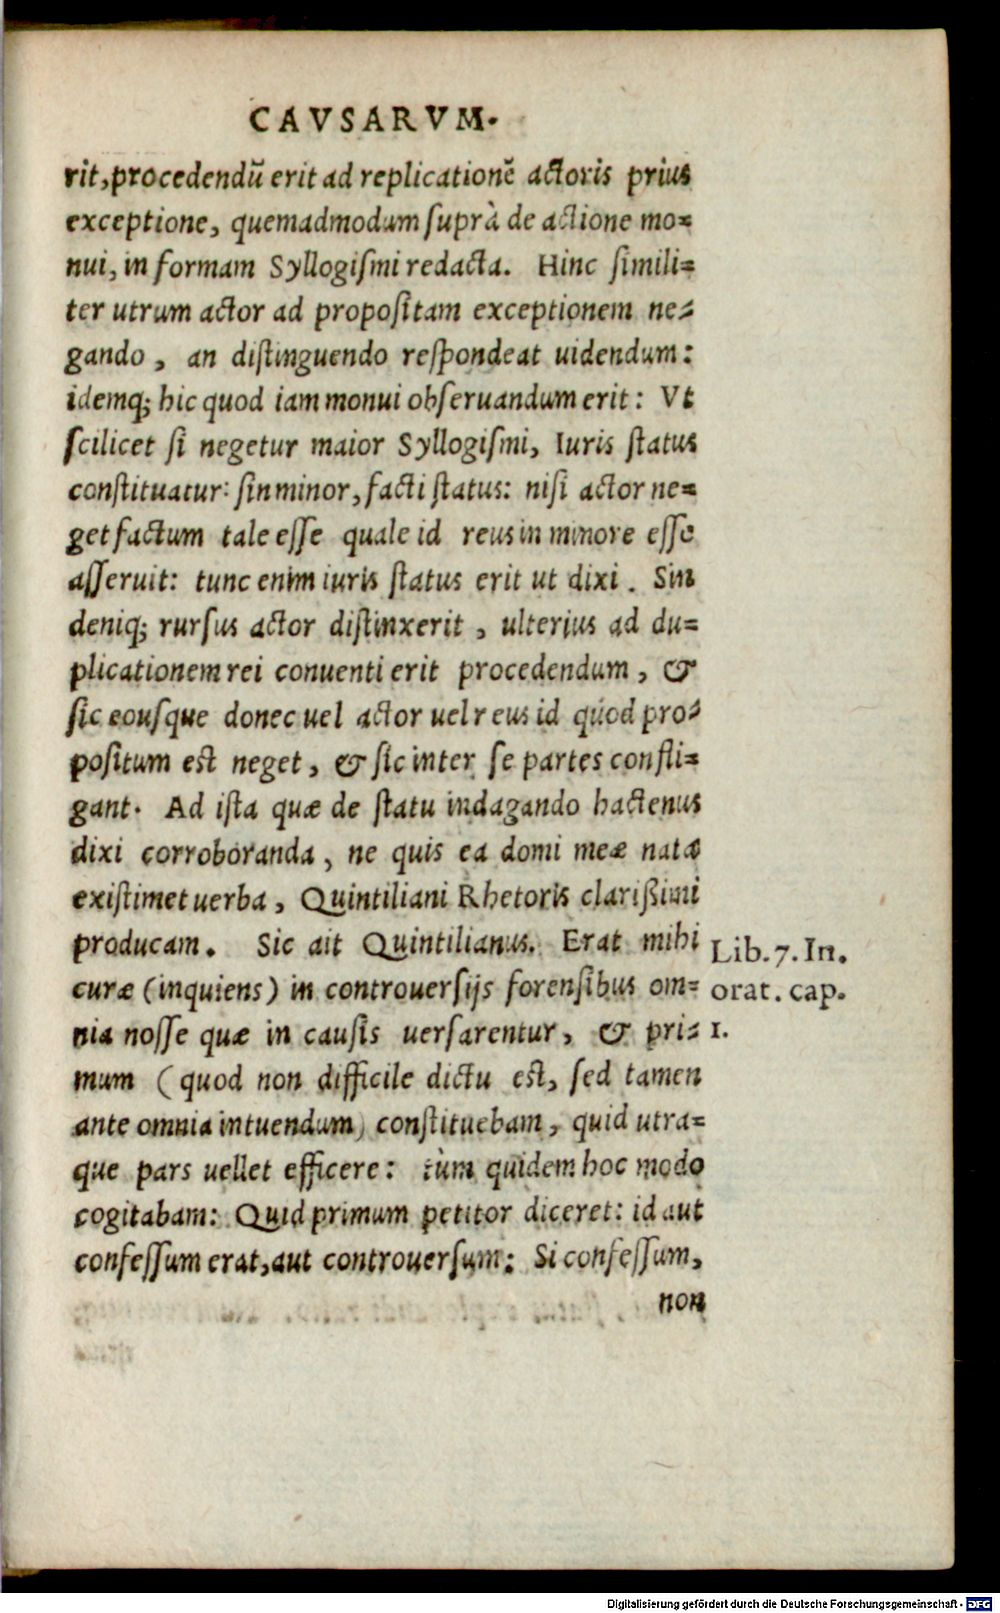 CAVSARVM.
rit, procedendū erit ad replicationē actoris prius
exceptione, quemadmodum suprà de actione mo=
nui, in formam Syllogismi redacta. Hinc simili=
ter utrum actor ad propositam exceptionem ne=
gando, an distinguendo respondeat uidendum:
idemq; hic quod iam monui obseruandum erit: Vt
scilicet si negetur maior Syllogismi, Iuris status
constituatur: sin minor, facti status: nisi actor ne=
get factum tale esse quale id reus in minore esse
asseruit: tunc enim iuris status erit ut dixi. Sin
deniq; rursus actor distinxerit, ulterius ad du=
plicationem rei conuenti erit procedendum, &
sic eousque donec uel actor uel reus id quod pro=
positum est neget, & sic inter se partes confli=
gant. Ad ista quæ de statu indagando hactenus
dixi corroboranda, ne quis ea domi meæ nata
existimet uerba, Quintiliani Rhetoris clarißimi
producam. Sic ait Quintilianus. Erat mihi
curæ (inquiens) in controuersijs forensibus om=
nia nosse quæ in causis uersarentur, & pri=
mum (quod non difficile dictu est, sed tamen
ante omnia intuendum) constituebam, quid utra=
que pars uellet efficere: tùm quidem hoc modo
cogitabam: Quid primum petitor diceret: id aut
confessum erat, aut controuersum: Si confessum,
non
Lib. 7. In.
orat. cap.
1.
Digitalisierung gefördert durch die Deutsche Forschungsgemeinschaft - DFG